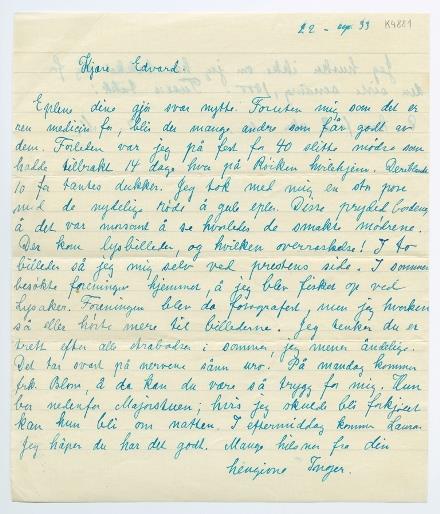 22 - sep. 33 K4881
Kjære Edvard.
Eplene dine gjør svar nytte. Foruten mig som det er
ren medicin for, blir der mange andre som får godt av
dem. Forleden var jeg på fest for 40 slitte mødre som
hadde tilbrakt 14 dage hver på Røiken hvilehjem. Deriblandt
10 fra tantes dekker. Jeg tok med mig en stor pose
med de nydelige røde å gule epler. Disse prydet bordene,
å det var morsomt å se hvorledes de smakte mødrene.
Der kom lysbilleder, og hvilken overraskelse! I to
billeder så jeg mig selv ved prestens side. I sommer
besøkte foreningen hjemmet, å jeg blev fisket op ved
Lysaker. Foreningen blev da fotografert, men jeg hverken
så eller hørte mere til billederne. Jeg tenker du er
trett efter alle strabadser i sommer, jeg mener åndelige.
Det tar svært på nervene sånn uro. På mandag kommer
frk. Blom, å da kan du være så trygg for mig. Hun
bor nedenfor Majorstuen; hvis jeg skulde bli forkjølet
kan hun bli om natten. I eftermiddag kommer Laura.
Jeg håper du har det godt. Mange hilsner fra din
hengivne Inger.